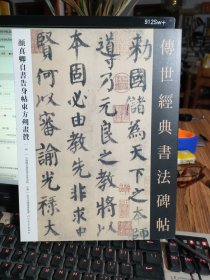 9125w+
傳世經典書法碑帖
勅國儲為天下之本師
導乃元良之教將以
本固必由教先非求忠
賢何以審諭光祿大
顏真卿自書告身帖東方朔畫贊